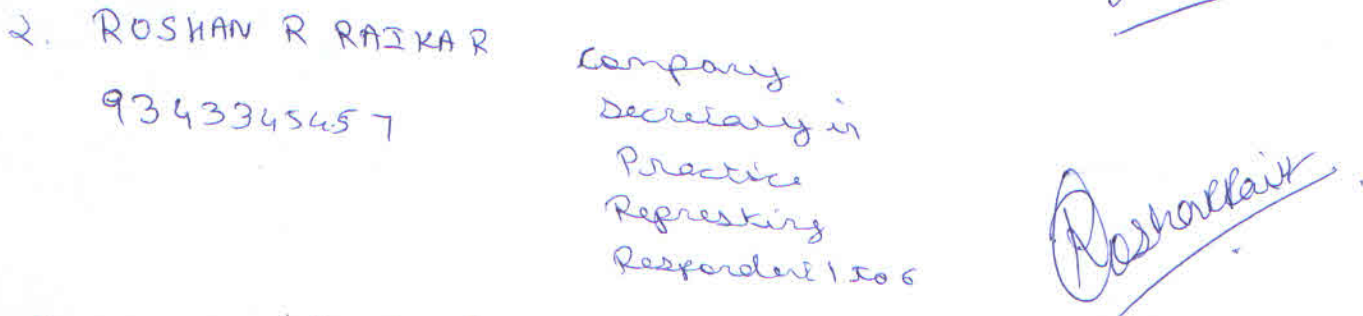 2. ROSHAN R RAIKAR
9343345457
Company
Secretary in
Practice
Represking
Respondent 1 to 6